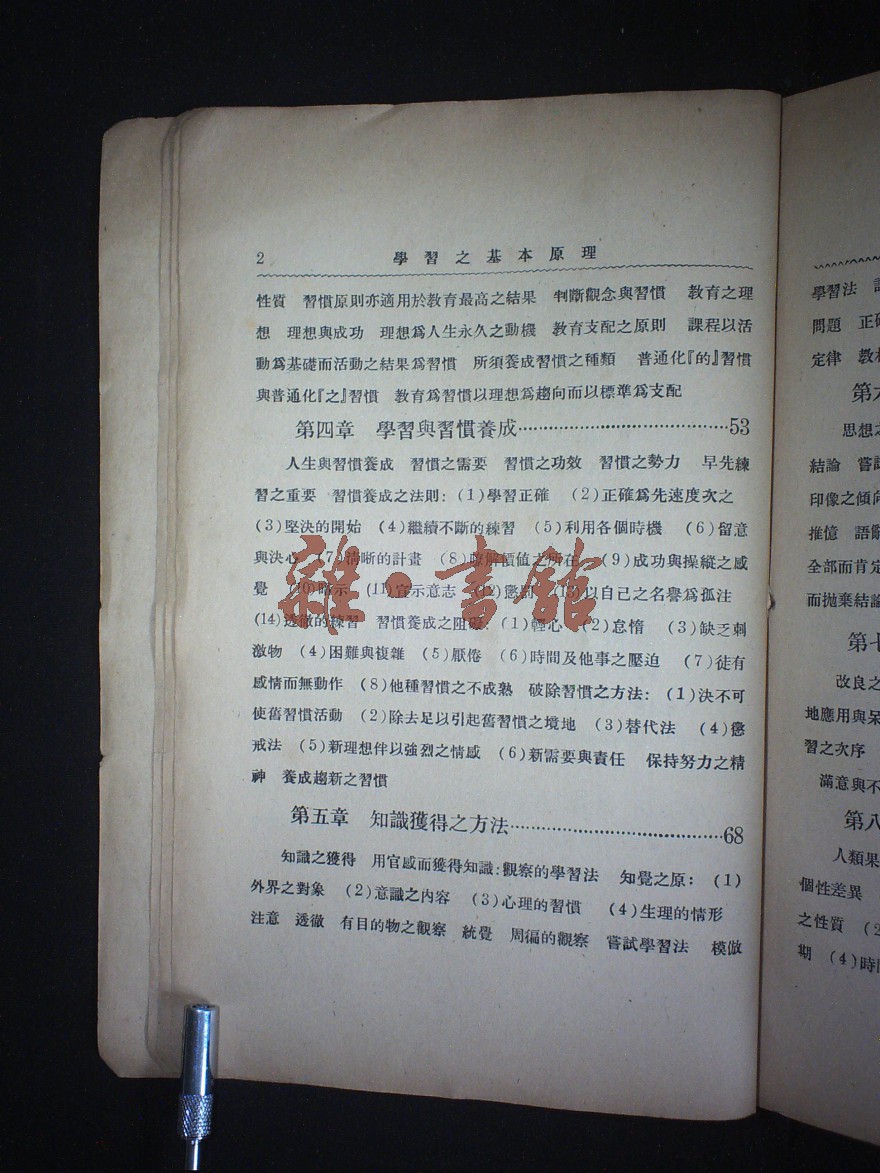 2 學習之基本原理
性質 習慣原則亦適用於教育最高之結果 判斷觀念與習慣 教育之理
想 理想與成功 理想爲人生永久之動機 教育支配之原則 課程以活
動爲基礎而活動之結果爲習慣 所須養成習慣之種類 普通化『的』習慣
與普通化『之』習慣 教育爲習慣以理想爲趨向而以標準爲支配
第四章 學習與習慣養成……………………………………53
人生與習慣養成 習慣之需要 習慣之功效 習慣之勢力 早先練
習之重要 習慣養成之法則：(1)學習正確 (2)正確爲先速度次之
(3)堅決的開始 (4)繼續不斷的練習 (5)利用各個時機 (6)留意
與決心 (7)清晰的計畫 (8)瞭解價值之所在 (9)成功與操縱之感
覺 (10)暗示 (11)宣示意志 (12)懲罰 (13)以自己之名譽爲孤注
(14)透徹的練習 習慣養成之阻礙：(1)輕心 (2)怠惰 (3)缺乏刺
激物 (4)困難與複雜 (5)厭倦 (6)時間及他事之壓迫 (7)徒有
感情而無動作 (8)他種習慣之不成熟 破除習慣之方法：(1)決不可
使舊習慣活動 (2)除去足以引起舊習慣之境地 (3)替代法 (4)懲
戒法 (5)新理想伴以強烈之情感 (6)新需要與責任 保持努力之精
神 養成趨新之習慣
第五章 知識獲得之方法……………………………………68
知識之獲得 用官感而獲得知識：觀察的學習法 知覺之原：(1)
外界之對象 (2)意識之內容 (3)心理的習慣 (4)生理的情形
注意 透徹 有目的物之觀察 統覺 周徧的觀察 嘗試學習法 模倣
雜·書館
學習法
問題 正確
定律 教材
第六
思想之
結論 嘗試
印像之傾向
推憶 語辭
全部而肯定
而拋棄結論
第七
改良之
地應用與呆
習之次序
滿意與不
第八
人類果
個性差異
之性質 (2
期 (4)時間